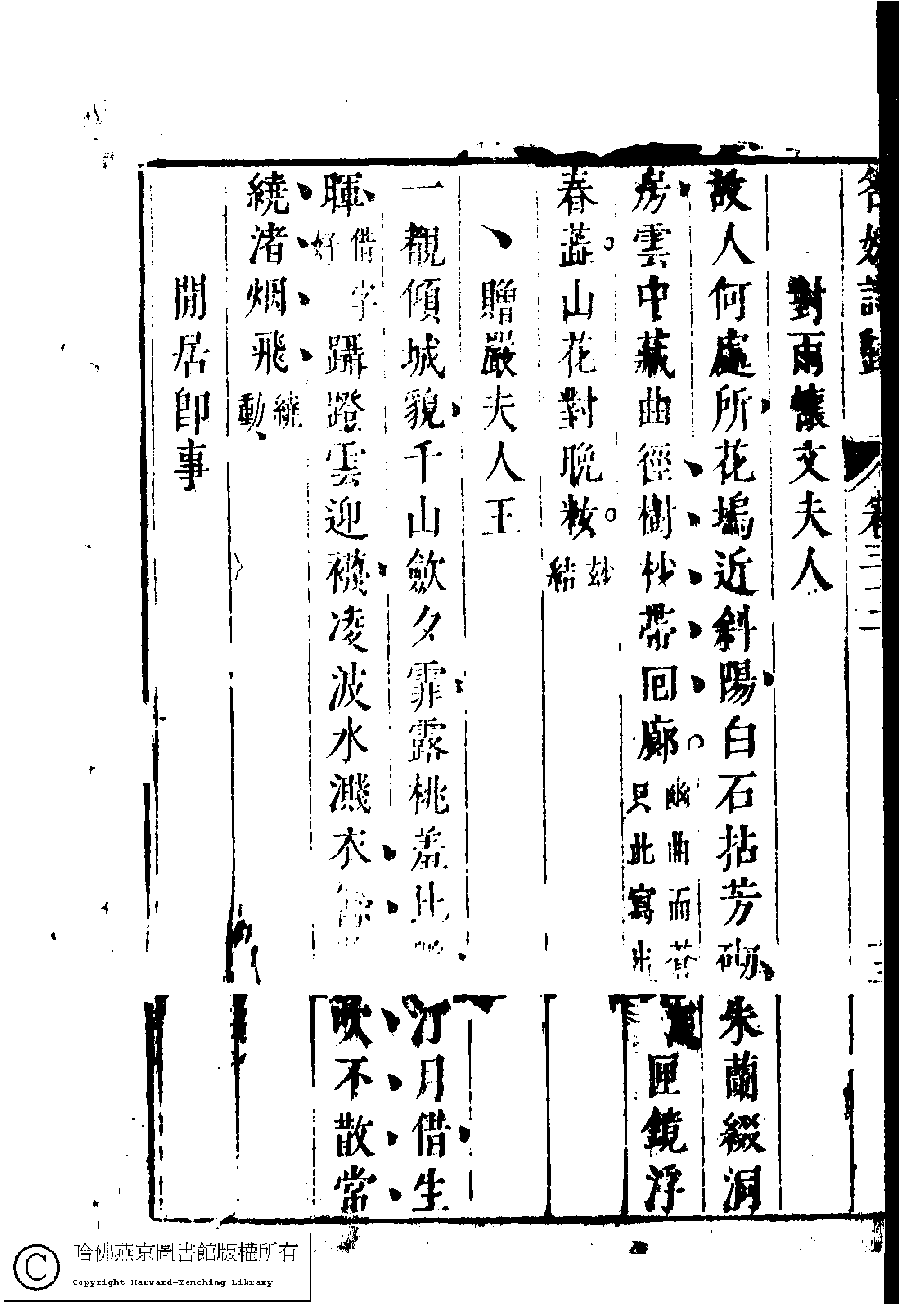 對雨懷文夫人
故人何處所花塢近斜陽白石拈芳砌朱蘭綴洞
房雲中藏曲徑樹杪帶回廊幽曲而蒼只此寫出匣鏡浮
春蕋山花對晚粧妙結
贈嚴夫人王
一覩傾城貌千山歛夕霏露桃羞比汀月借生
暉借字好躡蹬雲迎襪凌波水濺衣吹不散常
繞渚烟飛繞動
閒居即事
哈佛燕京圖書館版權所有
Copyright Harvard-Yenching Library